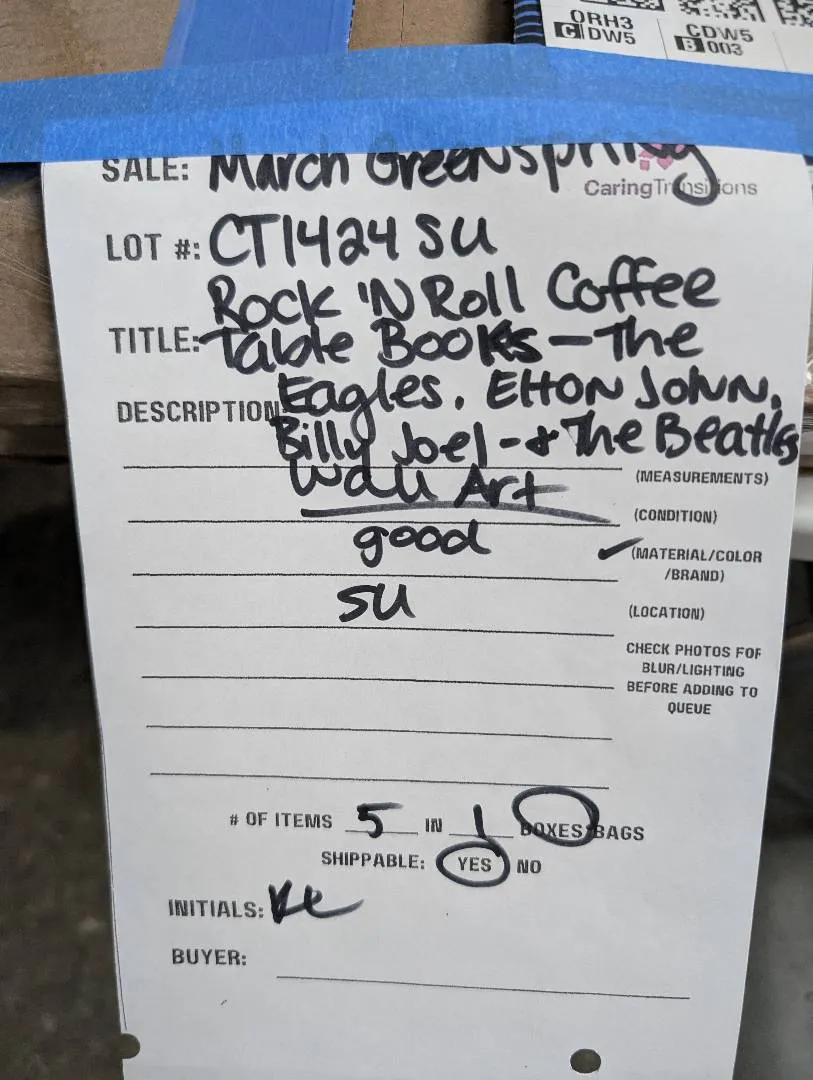 ORH3
C DW5
CDW5
B 003
SALE: March Greenspring
CaringTransitions
LOT #: CT1424 SU
Rock 'N Roll Coffee
TITLE: Table Books - The
Eagles, Elton John,
DESCRIPTION
Billy Joel - & The Beatles
Wall Art
(MEASUREMENTS)
(CONDITION)
good
✓ (MATERIAL/COLOR
/BRAND)
SU
(LOCATION)
CHECK PHOTOS FOR
BLUR/LIGHTING
BEFORE ADDING TO
QUEUE
# OF ITEMS 5 IN 1 BOXES BAGS
SHIPPABLE: YES NO
INITIALS:
BUYER: